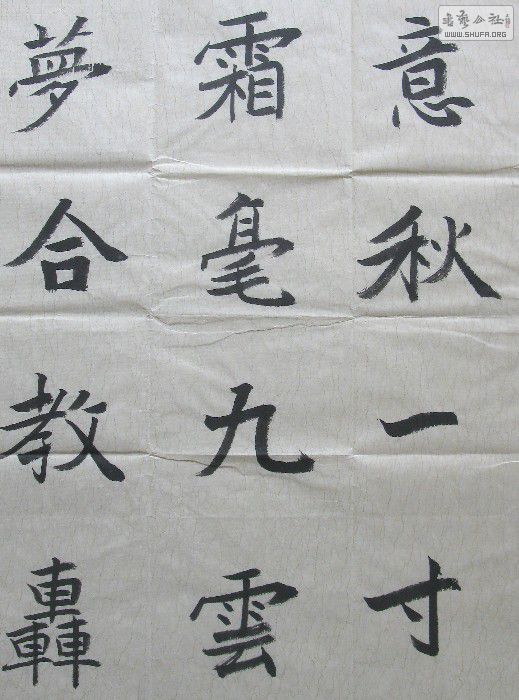 意秋一寸
霜毫九雲
夢合教轟
WWW.SHUFA.ORG